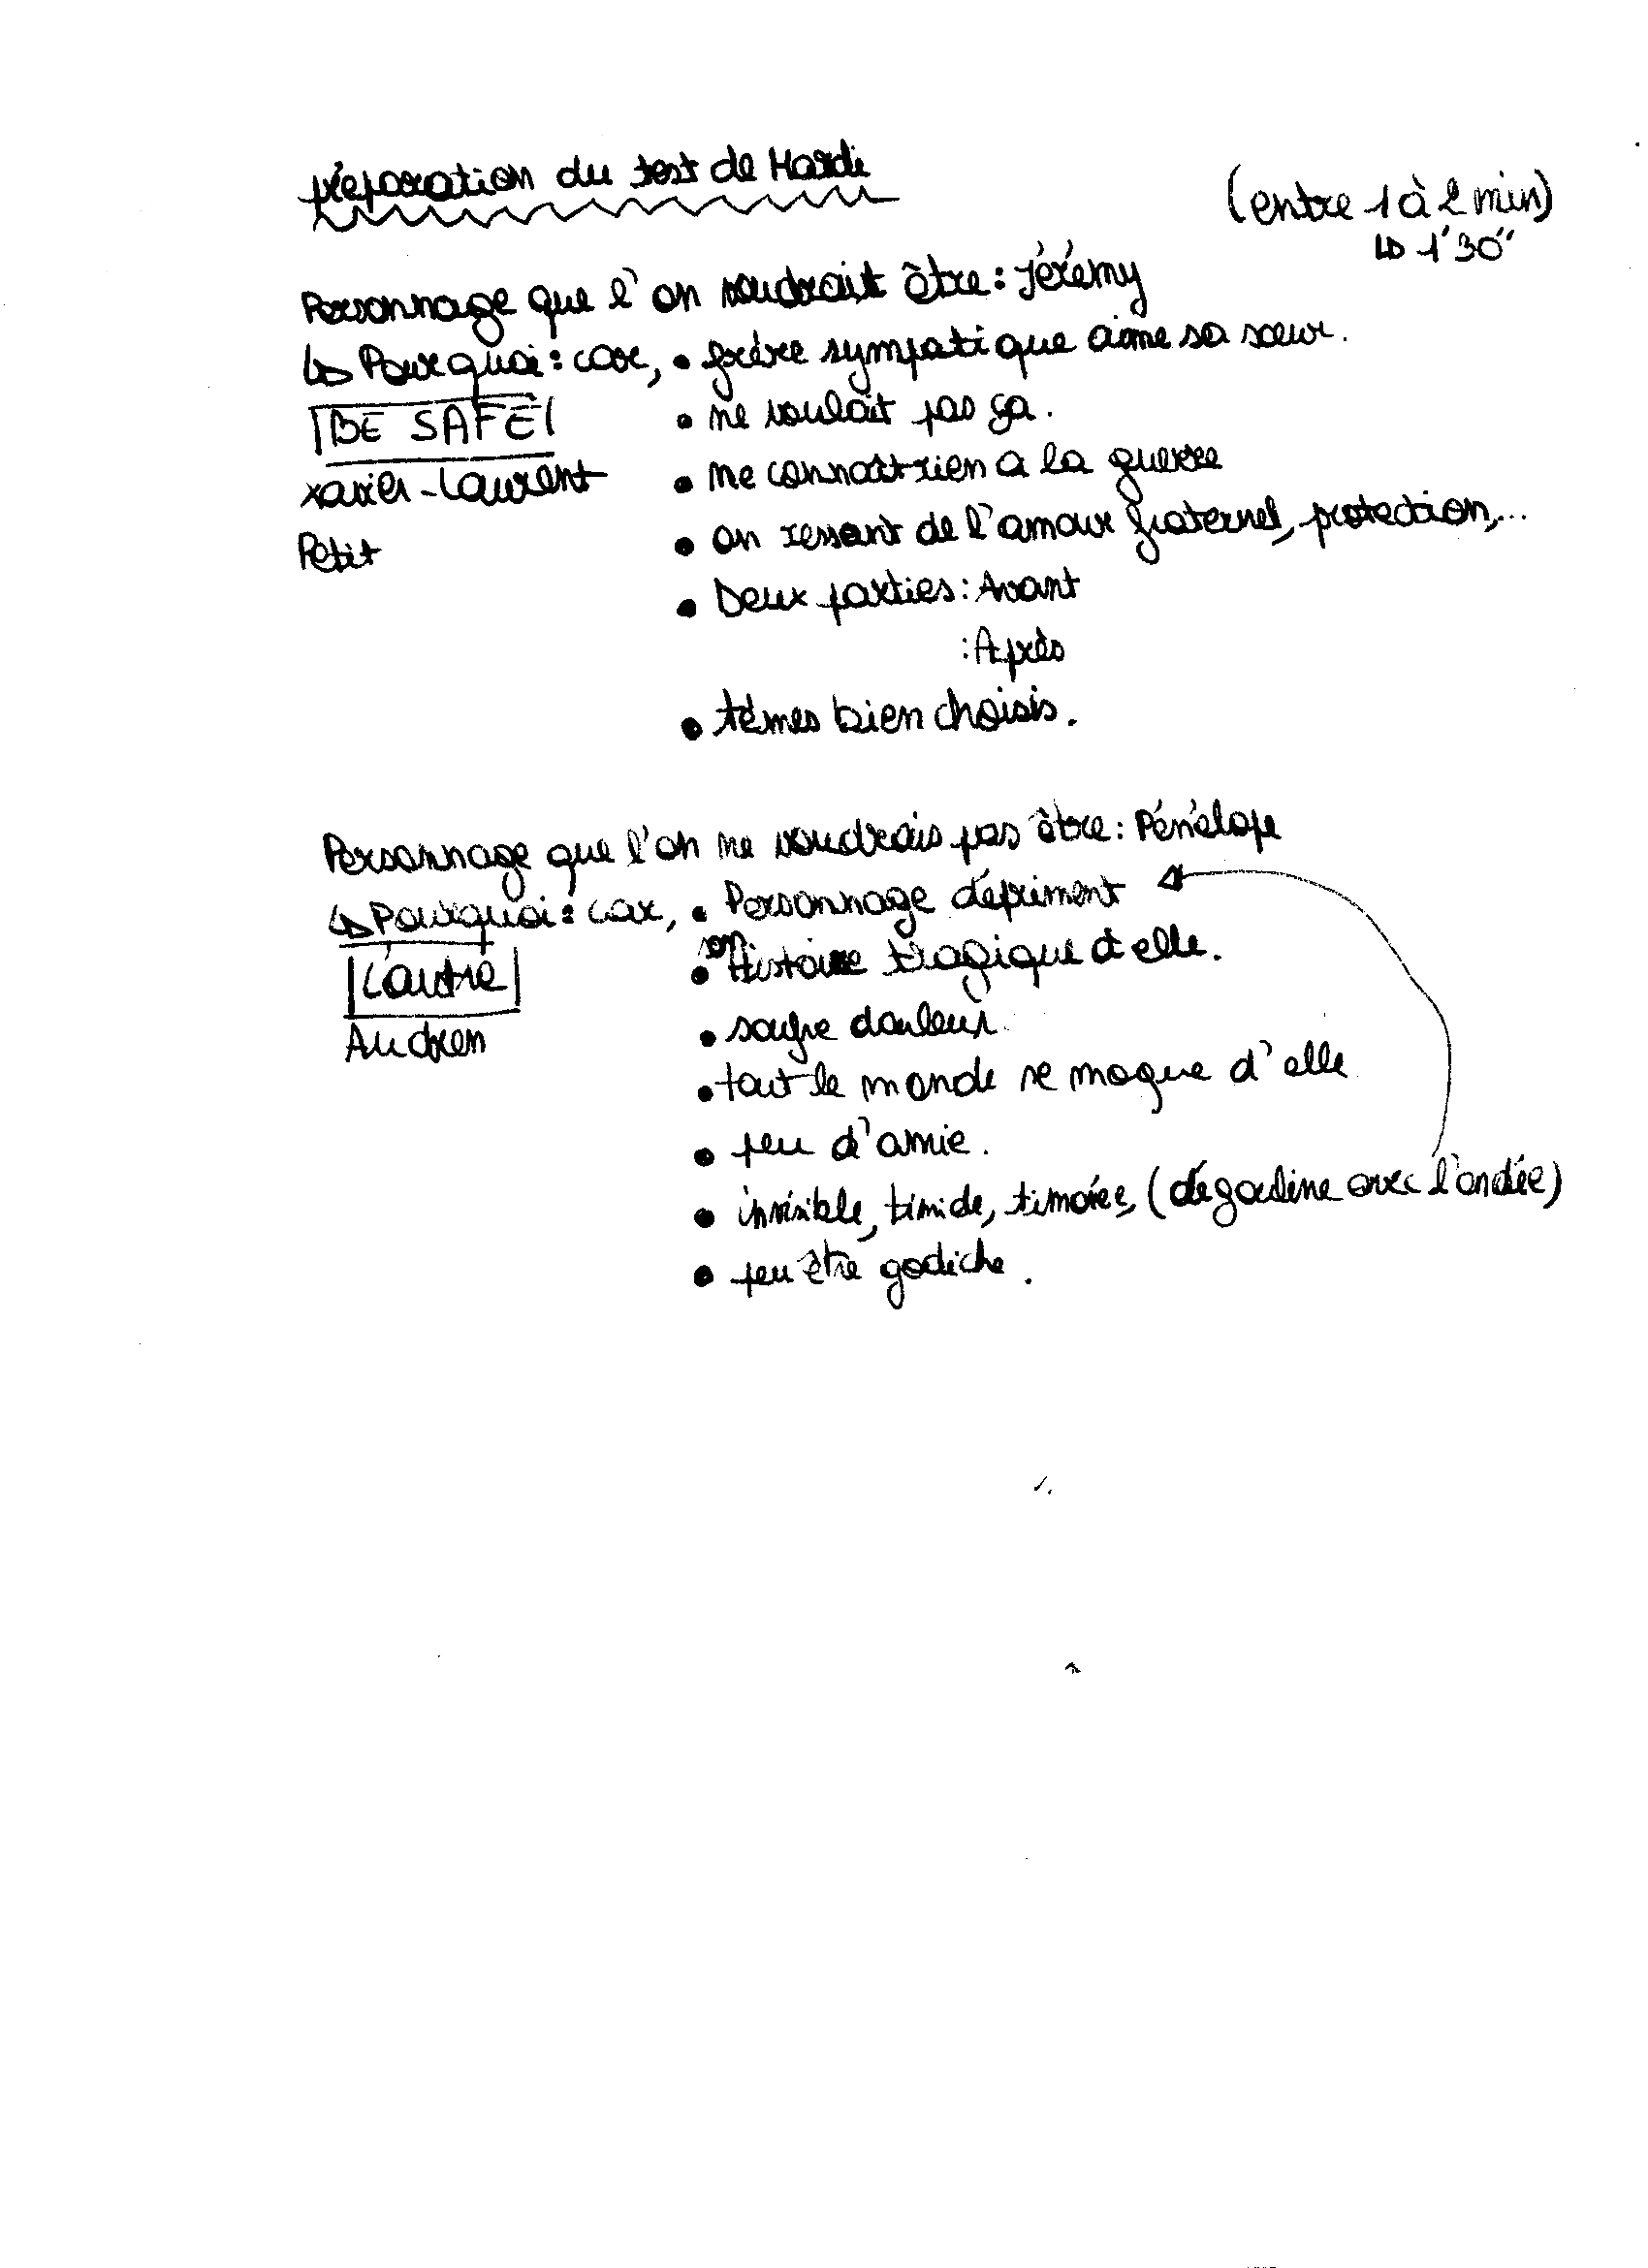 préparation du test de Mardi
(entre 1 à 2 min)
↳ 1'30''
Personnage que l'on voudrait être : Jérémy
↳ Pourquoi : car, • frère sympatique aime sa sœur.
BE SAFE • ne voulait pas ça.
Xavier-Laurent • ne connaît rien a la guerre
Petit • on ressent de l'amour fraternel, protection,...
• Deux parties : Avant
: Après
• témes bien choisis.
Personnage que l'on ne voudrais pas être : Pénélope
↳ Pourquoi : car, • Personnage dépriment
L'autre • Histoire tragique d elle.
• soufre douleur
• tout le monde se moque d'elle
• peu d'amie.
• invisible, timide, timorée, (dégouline avec l'ondée)
• peu être godiche.